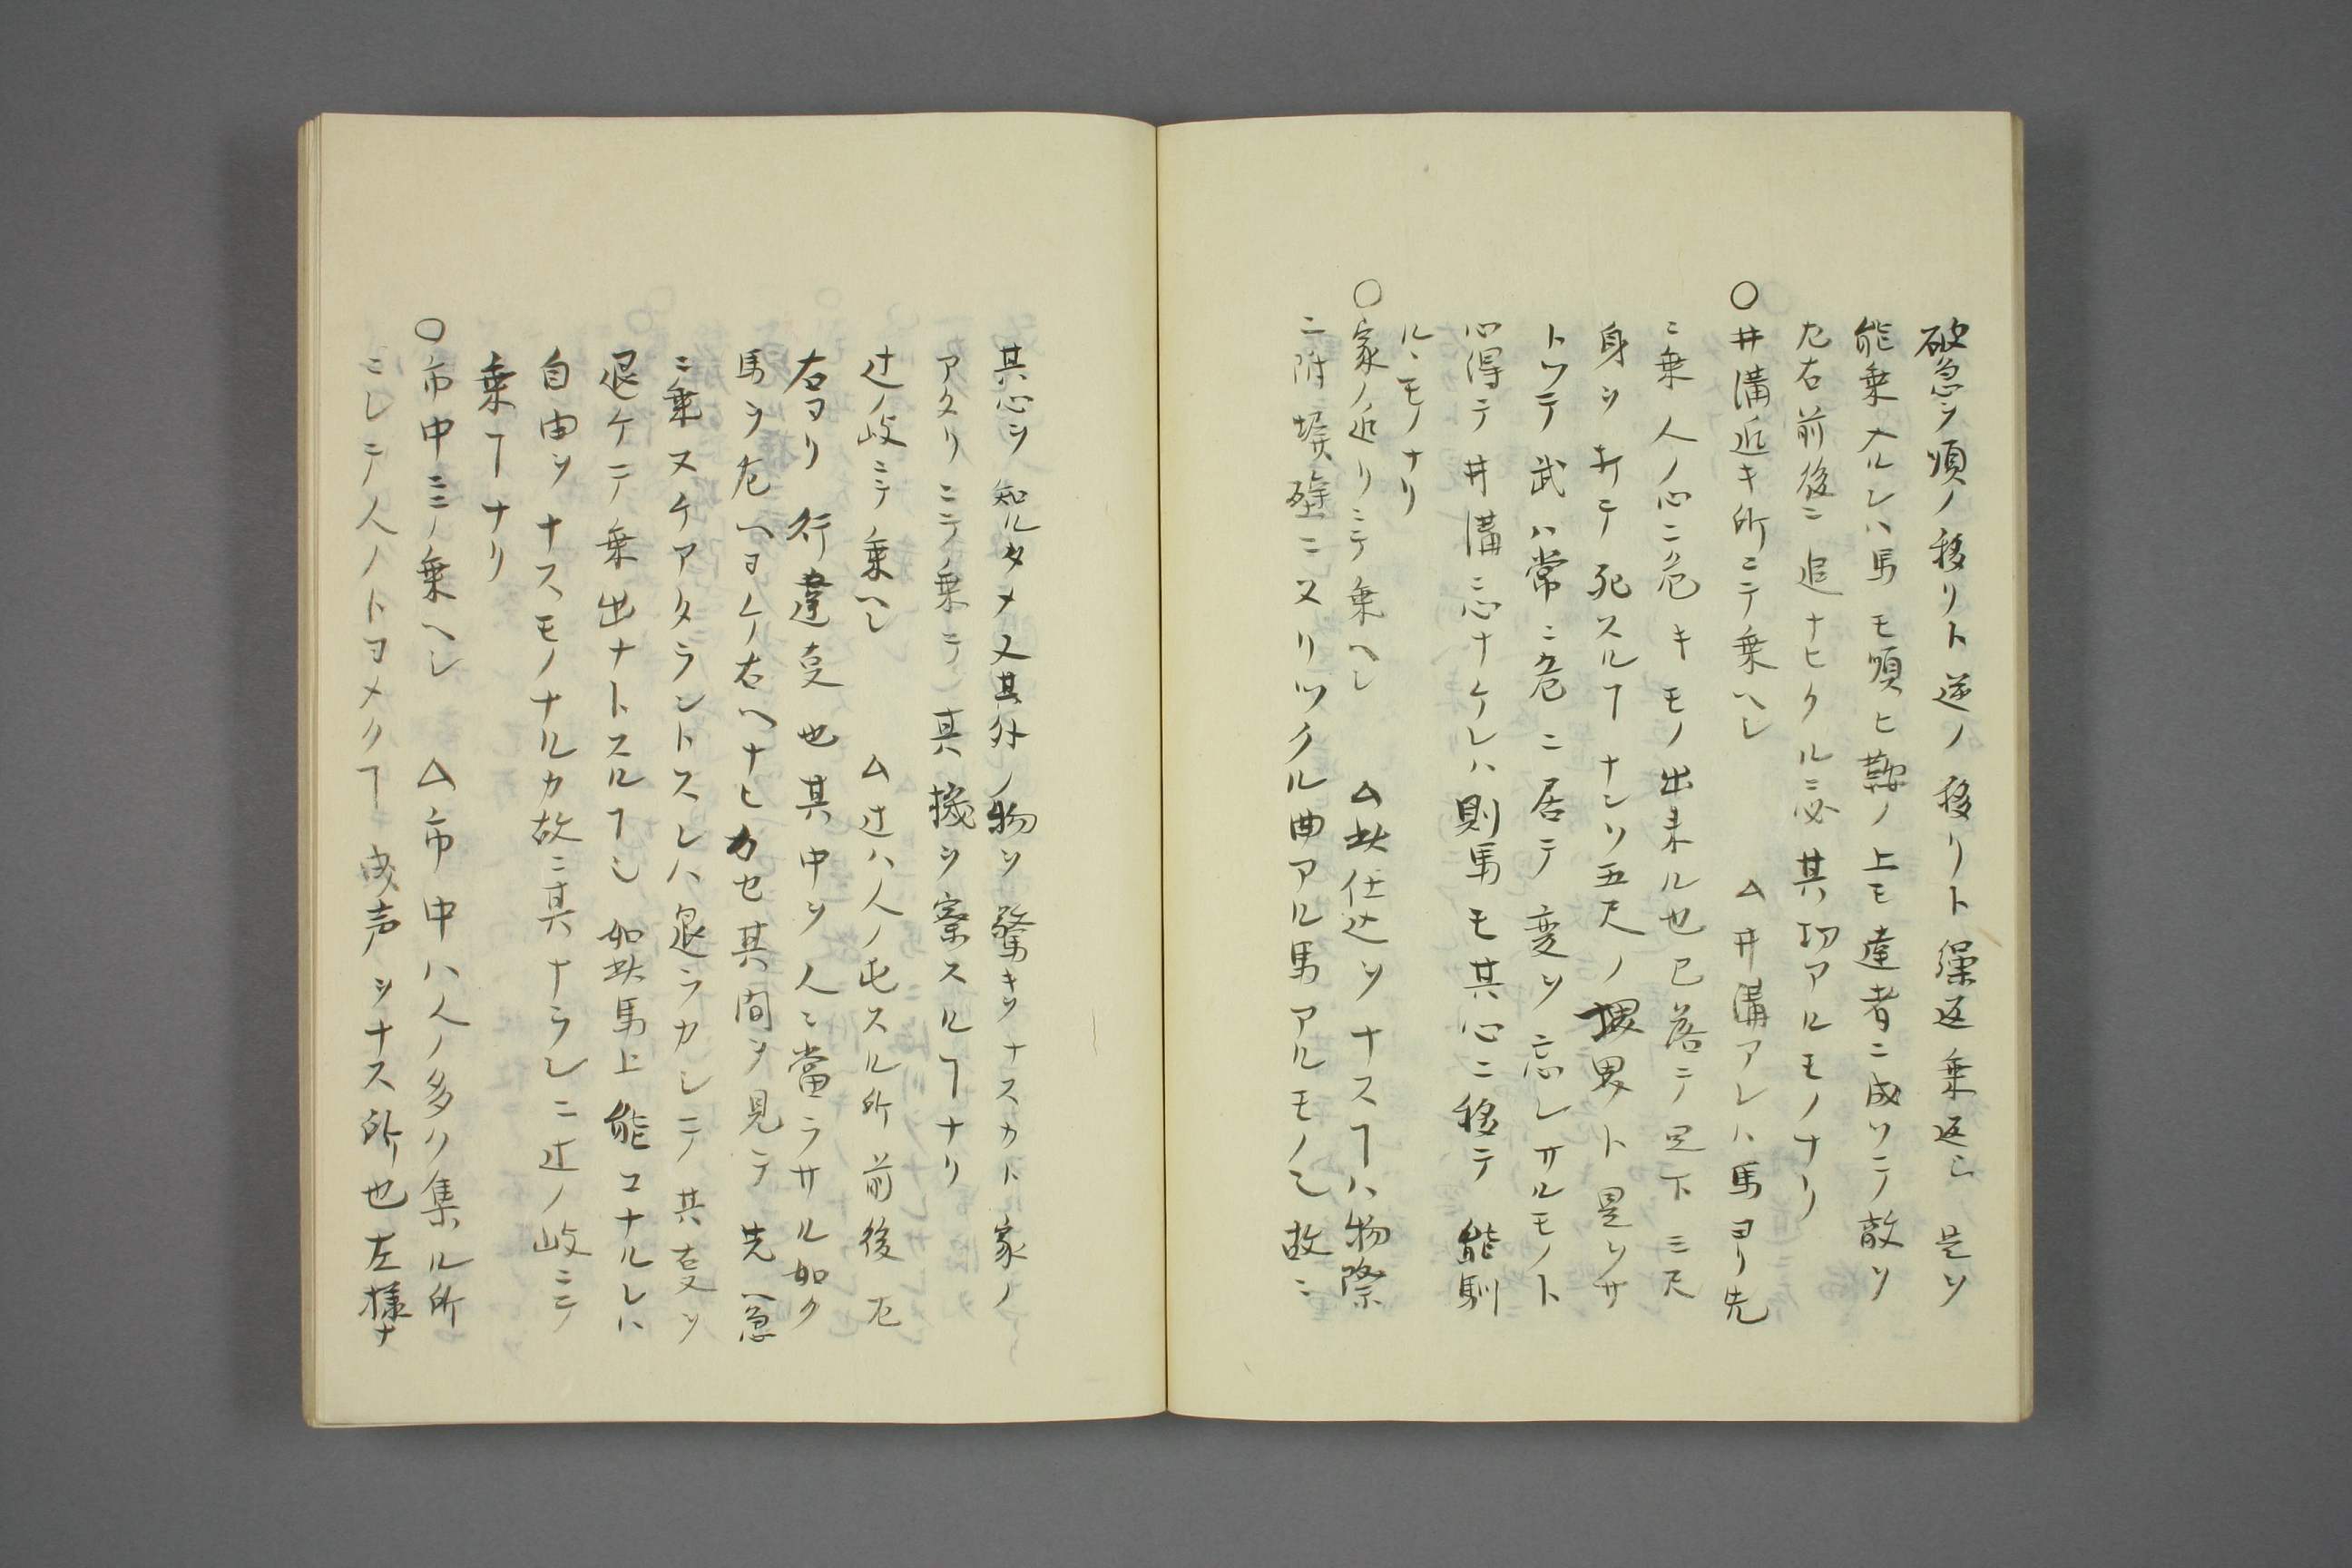 破急ヲ順ノ移リト逆ノ移リト繰返乗返シ是ヲ
能乗入ルレハ馬モ順ヒ鞍ノ上モ達者ニ成リテ敵ヲ
左右前後ニ追ナヒクルニ必其功アルモノナリ
○井溝近キ所ニテ乗ヘシ △井溝アレハ馬ヨリ先
ニ乗人ノ心ニ危キモノ出来ル也已落テ足下三尺
身ヲ打テ死スルヿナシリ五尺ノ
トツテ武ハ常ニ危ニ居テ変ヲ忘レサルモノト
心得テ井溝ニ心ナケレハ則馬モ其心ニ移テ能馴
ルヽモノナリ
○家ノ近リニテ乗ヘシ △此仕込ヲナスヿハ物際
ニ附塀壁ニスリツクル曲アル馬アルモノ也故ニ
其心ヲ知ルタメ又其外ノ物ヲ驚キヲナスカト家ノ
アタリニテ乗テ其機ヲ察スルヿナリ
辻ノ岐ニテ乗ヘシ △辻ハ人ノ屯スル所前後左
右ヨリ行違変也其中ヲ人ニ當ラサル如ク
馬ヲ左ヘヨケ右ヘナヒカセ其間ヲ見テ先ヘ急
ニ乗ヌケアタラントスレハ退ラカシテ其変ヲ
退ケテ乗出ナトスルヿ也如此馬上能コナルレハ
自由ヲナスモノナルカ故ニ其ナラシニ辻ノ岐ニテ
乗ヿナリ
○市中ニテ乗ヘシ △市中ハ人ノ多ク集ル所
ニシテ人ノトヨメクヿ成声ヲナス所也左様ナ